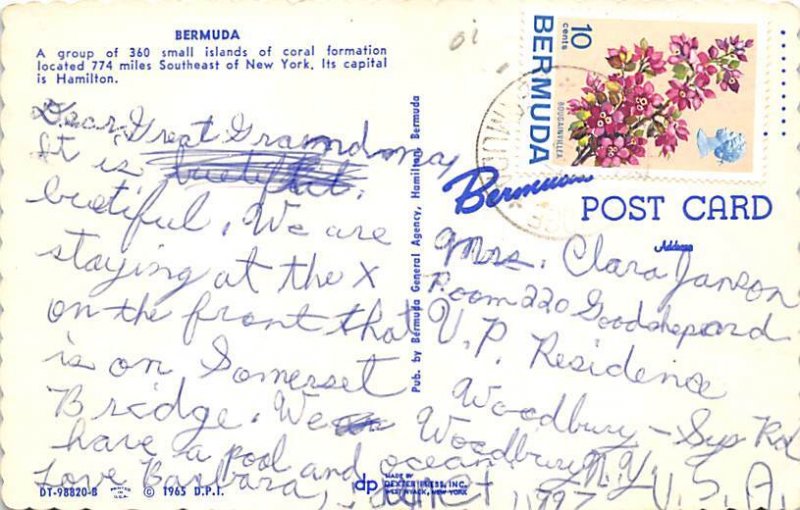 BERMUDA
A group of 360 small islands of coral formation
located 774 miles Southeast of New York. Its capital
is Hamilton.
Dear Great Grandma,
It is
buetiful. We are
staying at the X
on the front that
is on Somerset
Bridge. We
have a pool and ocean.
Love Barbara,
DT-98820-B
PRINTED IN U.S.A.
© 1965 D.P.I.
Pub. by Bermuda General Agency, Hamilton, Bermuda
dp
MADE BY
DEXTER PRESS, INC.
WEST NYACK, NEW YORK
10
cents
BERMUDA
BOUGAINVILLEA
Bermuda
POST CARD
Address
Mrs. Clara Janson
Room 220 Goodshepard
U.P. Residence
Woodbury - Sys Rd
Woodbury N.Y.
11797 U.S.A.